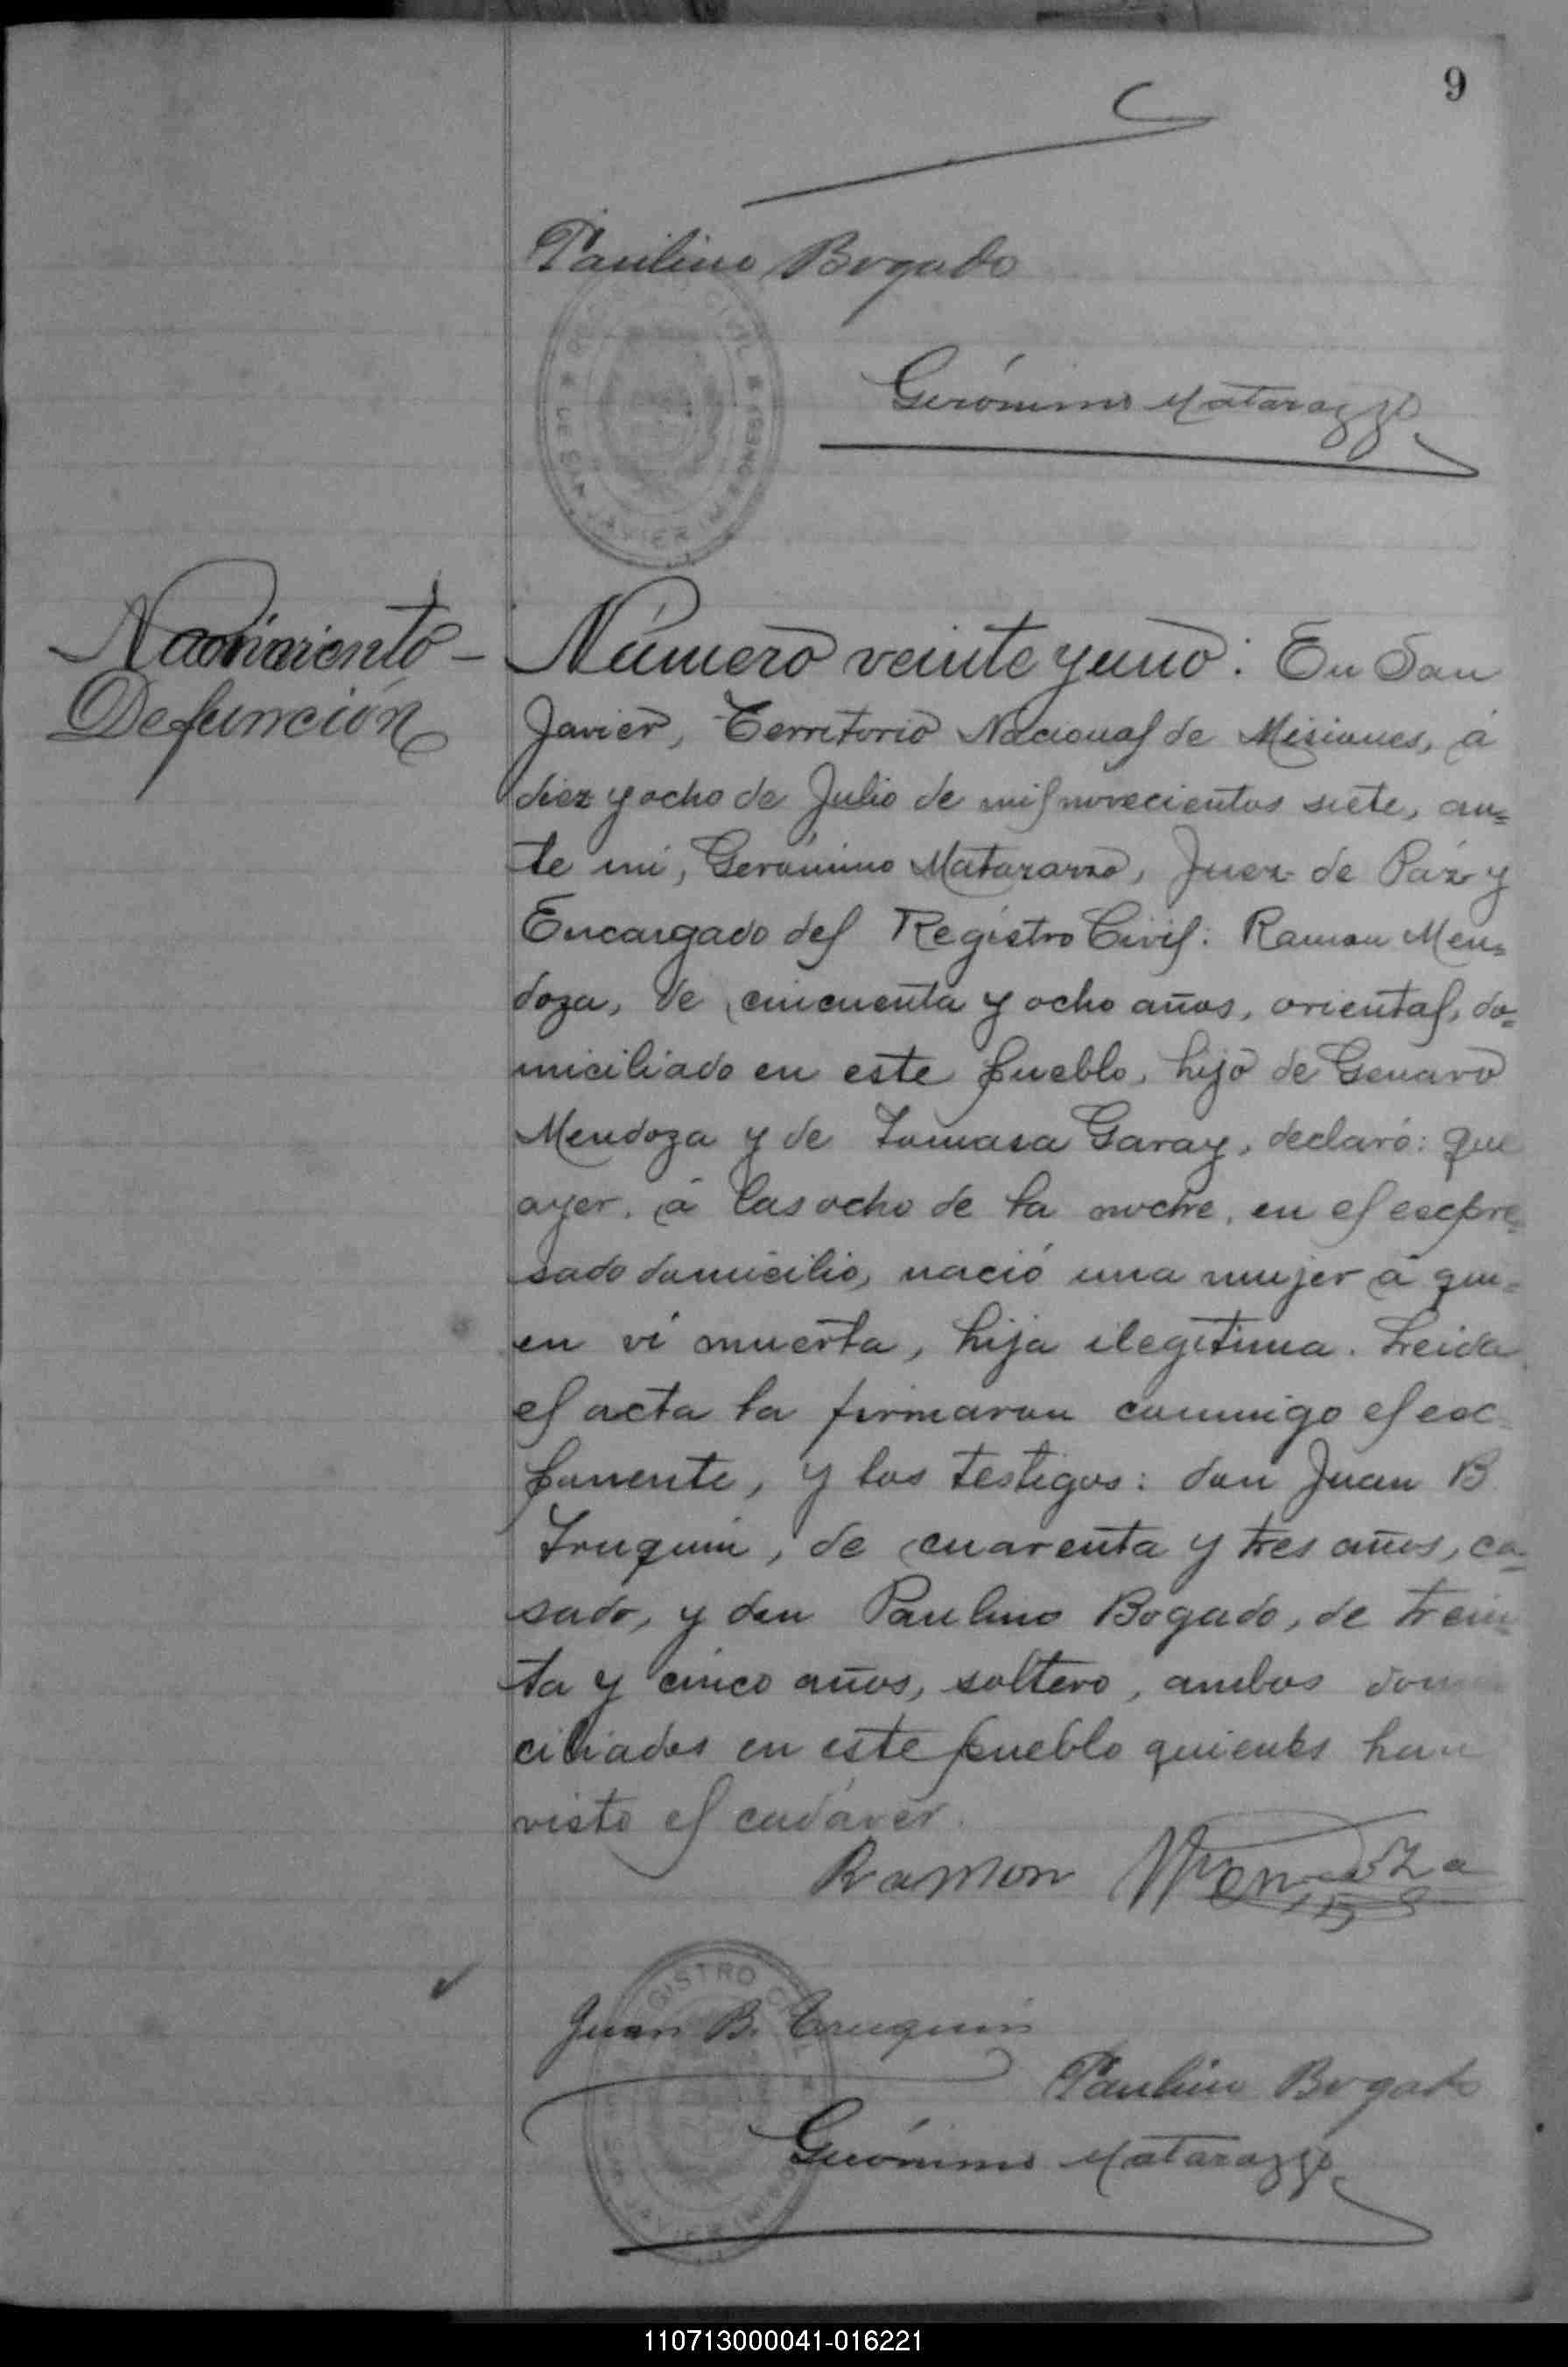 9
Paulino Bogado
REGISTRO CIVIL * MISIONES * DE SAN JAVIER
Gerónimo Matarazzo
Nacimiento –
Defunción
Número veinte y uno: En San
Javier, Territorio Nacional de Misiones, á
diez y ocho de Julio de mil novecientos siete, an=
te mi, Gerónimo Matarazzo, Juez de Paz y
Encargado del Registro Civil: Ramon Men=
doza, de cincuenta y ocho años, oriental, do=
miciliado en este pueblo, hijo de Genaro
Mendoza y de Tomasa Garay, declaró: que
ayer, á las ocho de la noche, en el expre=
sado domicilio, nació una mujer á qui=
en vi muerta, hija ilegitima. Leida
el acta la firmaron conmigo el ex-
ponente, y los testigos: don Juan B.
Truquin, de cuarenta y tres años, ca=
sado, y don Paulino Bogado, de trein=
ta y cinco años, soltero, ambos domi
ciliados en este pueblo quienes han
visto el cadáver.
Ramon Mendoza
REGISTRO CIVIL
Juan B. Truquin
Paulino Bogado
Gerónimo Matarazzo
110713000041-016221